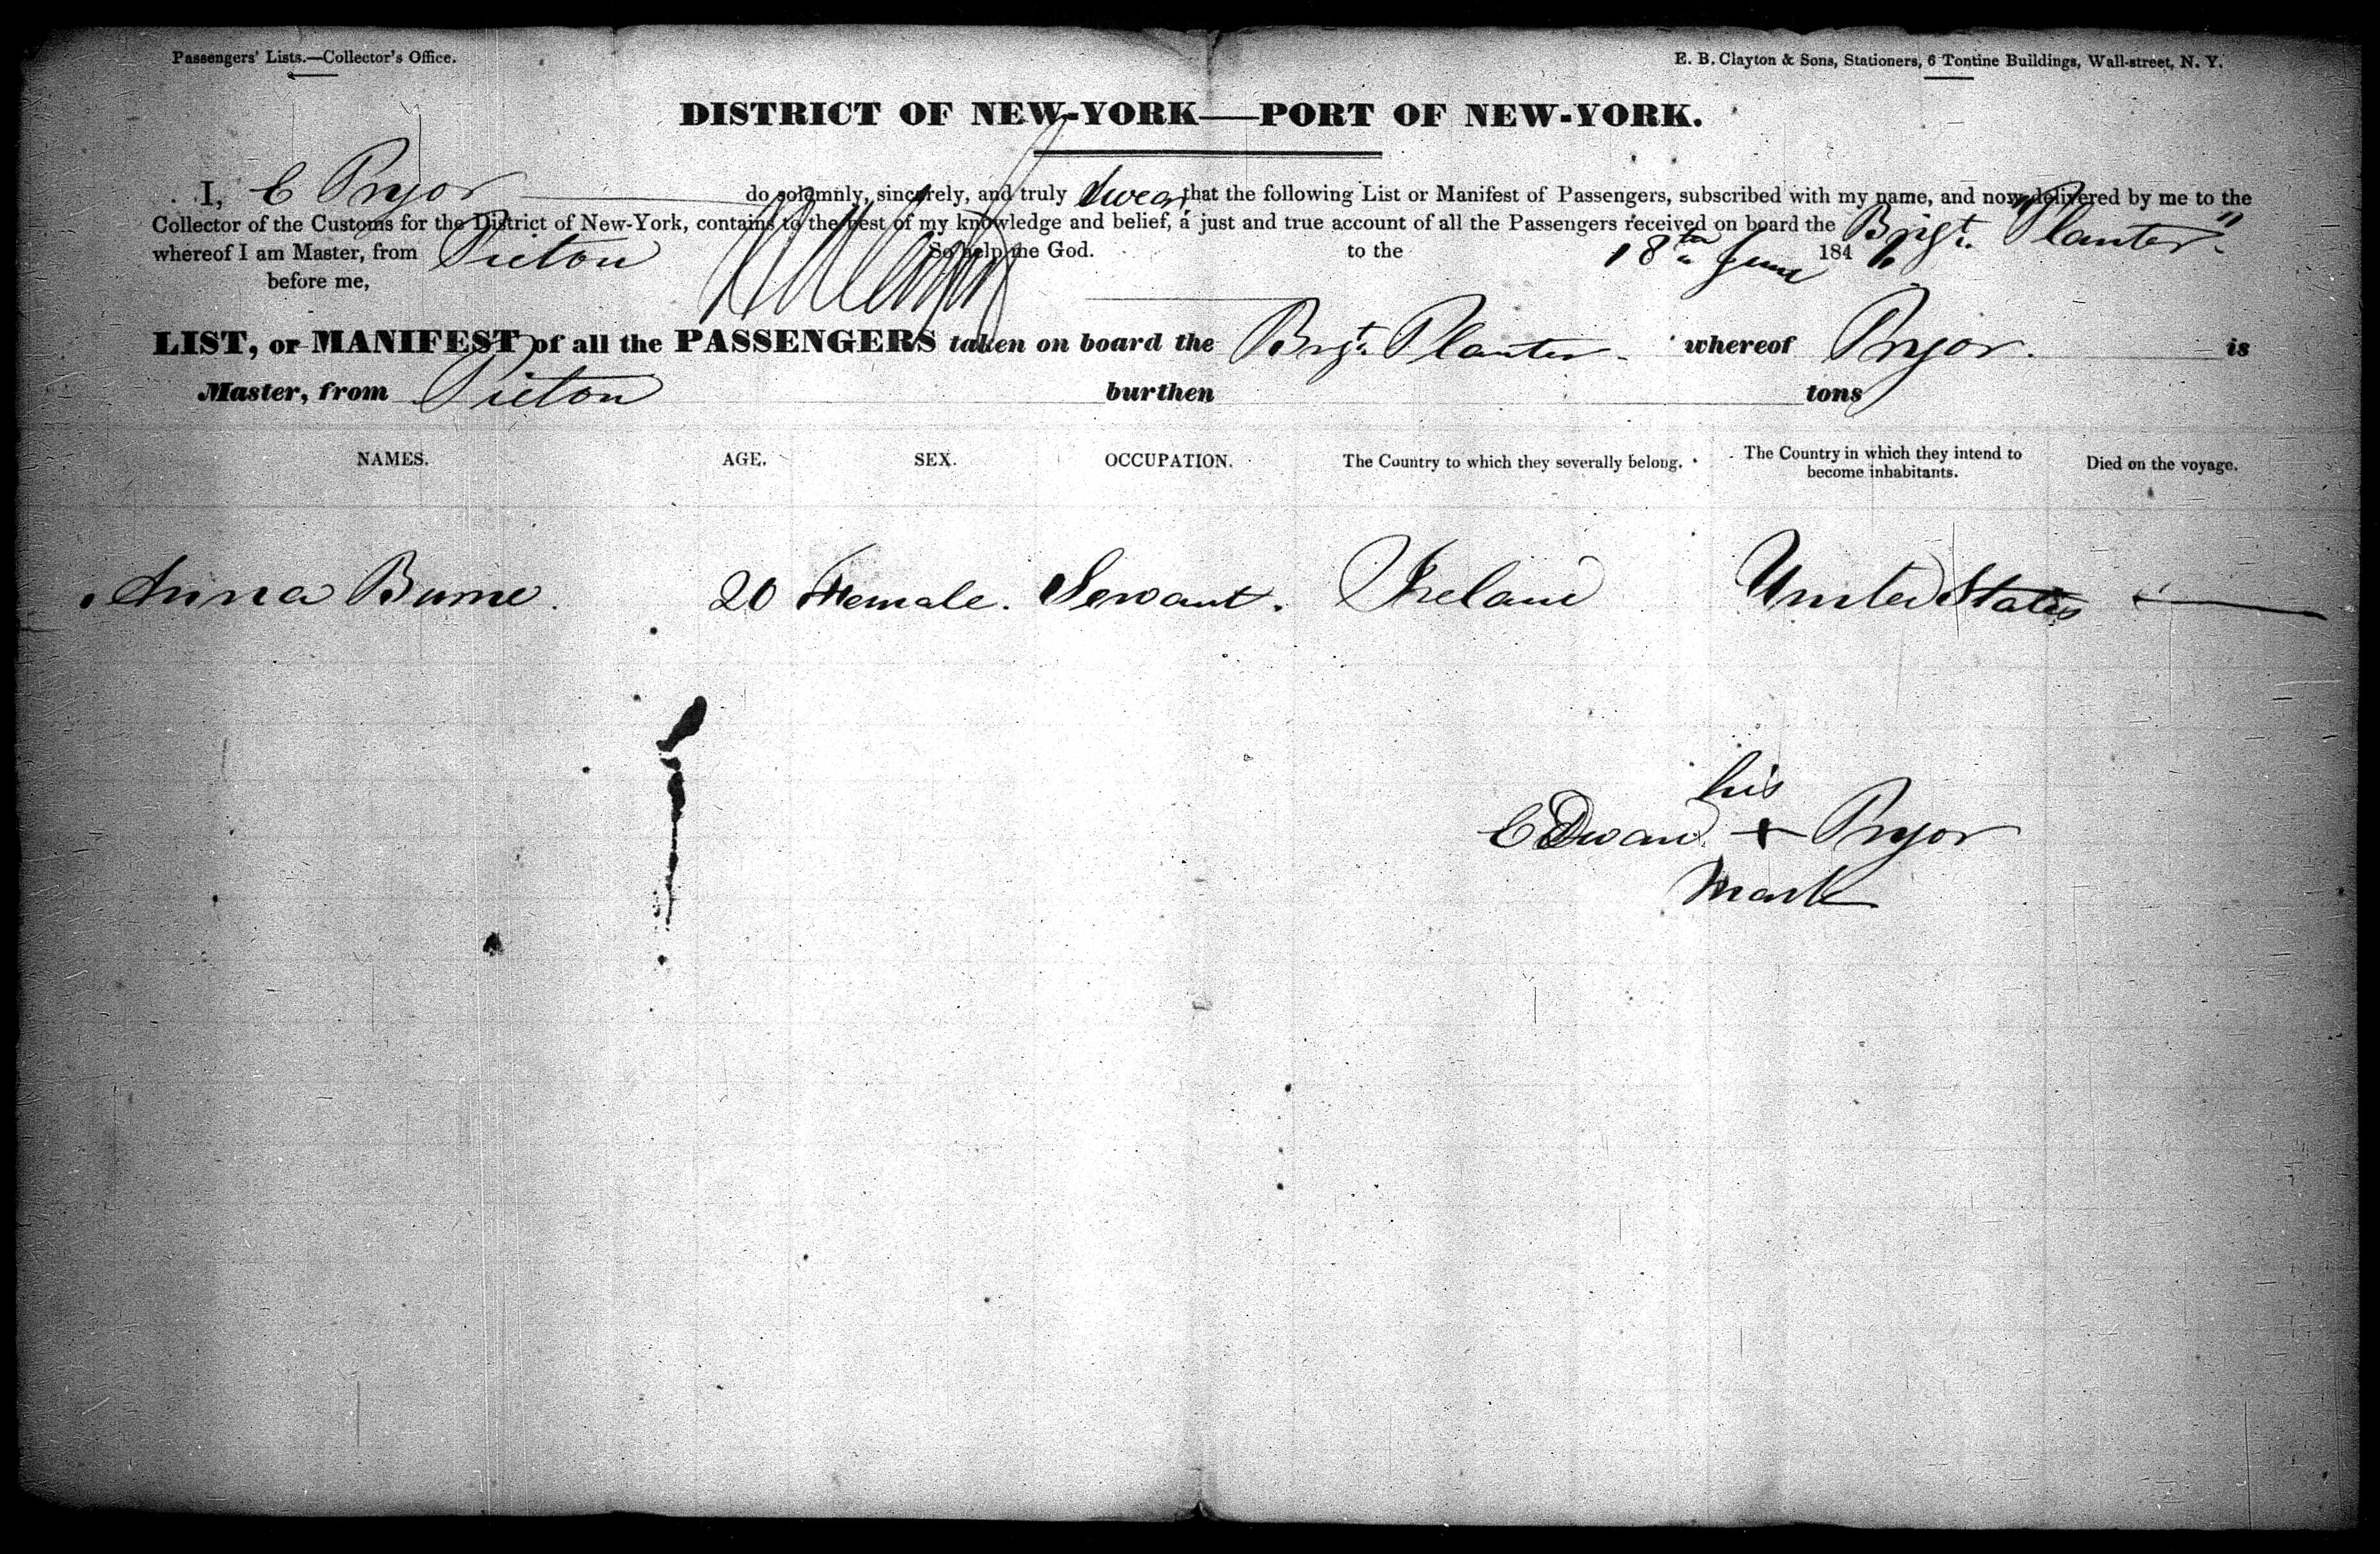 Passengers' Lists.—Collector's Office.
E. B. Clayton & Sons, Stationers, 6 Tontine Buildings, Wall-street, N. Y.
DISTRICT OF NEW-YORK—PORT OF NEW-YORK.
I, E Pryor do solemnly, sincerely, and truly swear that the following List or Manifest of Passengers, subscribed with my name, and now delivered by me to the
Collector of the Customs for the District of New-York, contains to the best of my knowledge and belief, a just and true account of all the Passengers received on board the Brigt. "Planter"
whereof I am Master, from Picton So help me God. to the 18th June 1846
before me,
LIST, or MANIFEST of all the PASSENGERS taken on board the Brgt. Planter whereof Pryor. is
Master, from Picton burthen tons
NAMES. AGE. SEX. OCCUPATION. The Country to which they severally belong. The Country in which they intend to become inhabitants. Died on the voyage.
Anna 20 Female. Servant. Ireland United States
his
Edward + Pryor
Mark